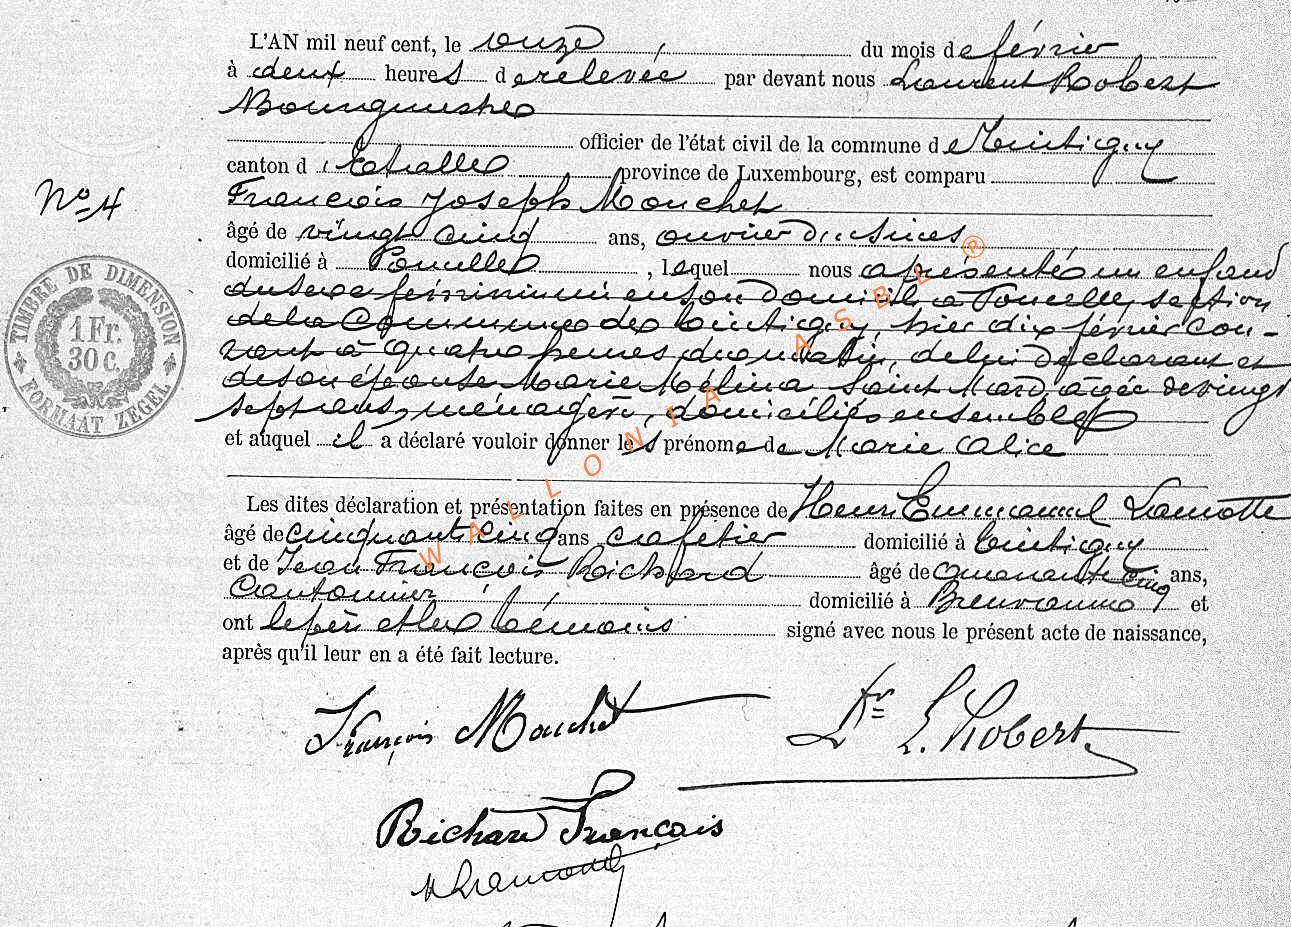 L'AN mil neuf cent, le onze du mois de février
à deux heures de relevée par devant nous Laurent Robert
Bourgmestre
officier de l'état civil de la commune de Tintigny
canton d'Etalle province de Luxembourg, est comparu
François Joseph Mouchet
N° 4
âgé de vingt cinq ans, ouvrier d'usines
domicilié à Poncelle, lequel nous a présenté un enfant
du sexe féminin né en son domicile à Poncelle, section
de la Commune de Tintigny, hier dix février cou-
rant à quatre heures du matin, de lui déclarant et
de son épouse Marie Mélina Saint Mard, âgée de vingt
sept ans, ménagère, domiciliés ensemble
et auquel il a déclaré vouloir donner les prénoms de Marie Alice
TIMBRE DE DIMENSION
1 Fr.
30 c.
FORMAAT ZEGEL
WALLONIA ASBL ®
Les dites déclaration et présentation faites en présence de Henri Emmanuel Lamotte
âgé de cinquante cinq ans cafetier domicilié à Tintigny
et de Jean François Richard âgé de quarante cinq ans,
Cantonnier domicilié à Breuvanne et
ont le père et les témoins signé avec nous le présent acte de naissance,
après qu'il leur en a été fait lecture.
François Mouchet
Dr L. Robert
Richard François
H Lamotte